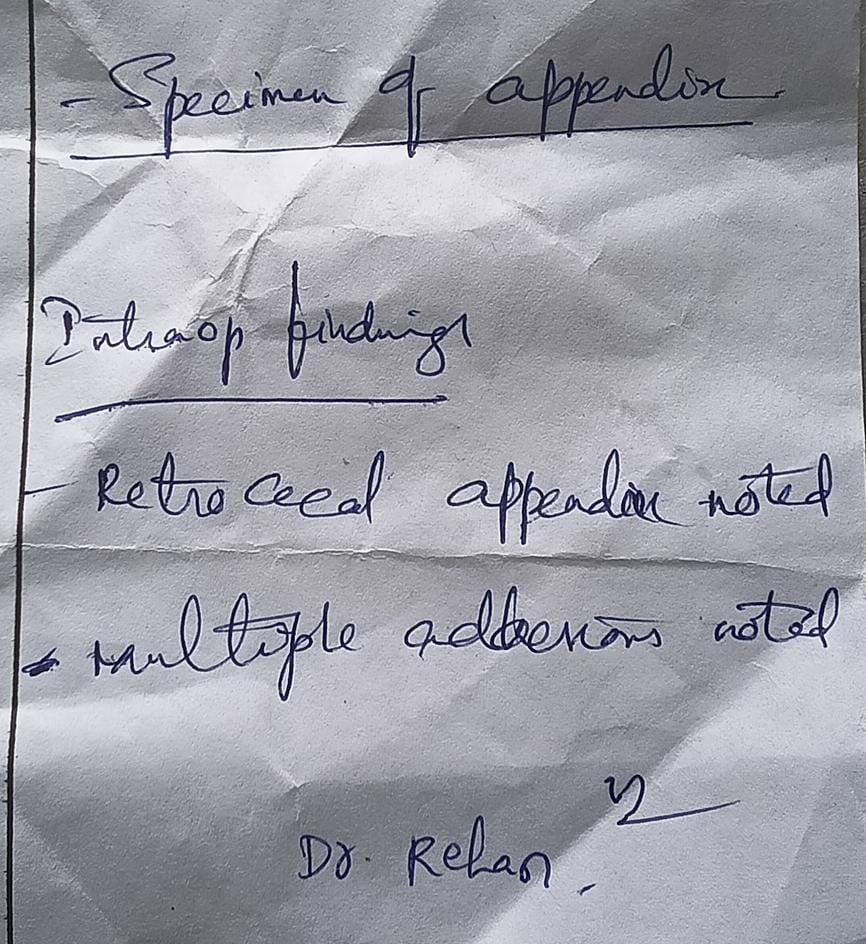 - Specimen of appendix
Intraop findings
- Retrocecal appendix noted
- Multiple adhesions noted
Dr. Rehan.